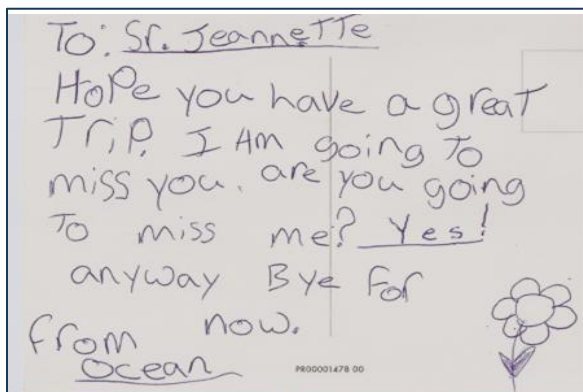 To: Sr. Jeannette
Hope you have a great
Trip. I Am going To
miss you. are you going
To miss me? Yes!
anyway Bye For
now.
From
Ocean
PR00001478 00